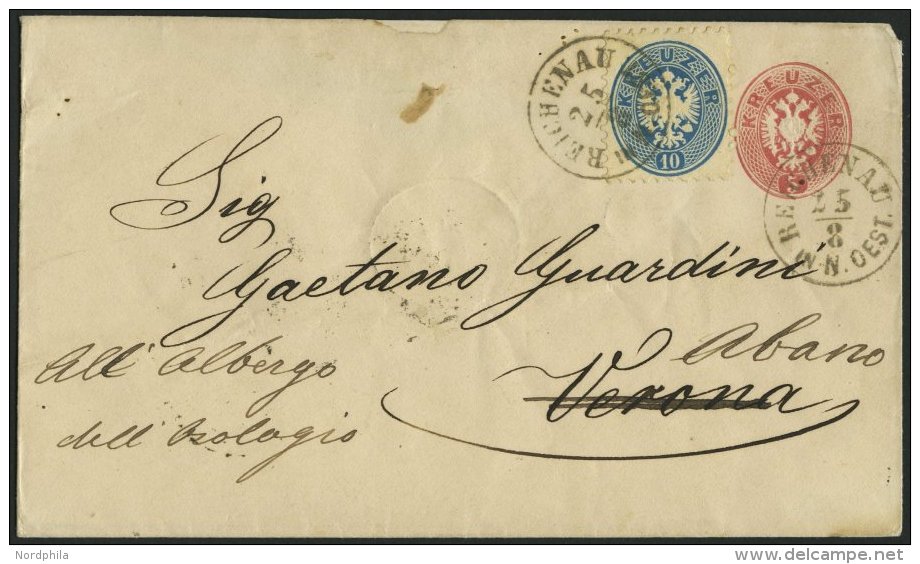 KREUZER
10
KREUZER
REICHENAU
25
REICHENAU
25
8
N. OEST.
Sig
Gaetano Guardini
Abano
Verona
All' Albergo
dell' Orologio
Nordphila
delcampe.net